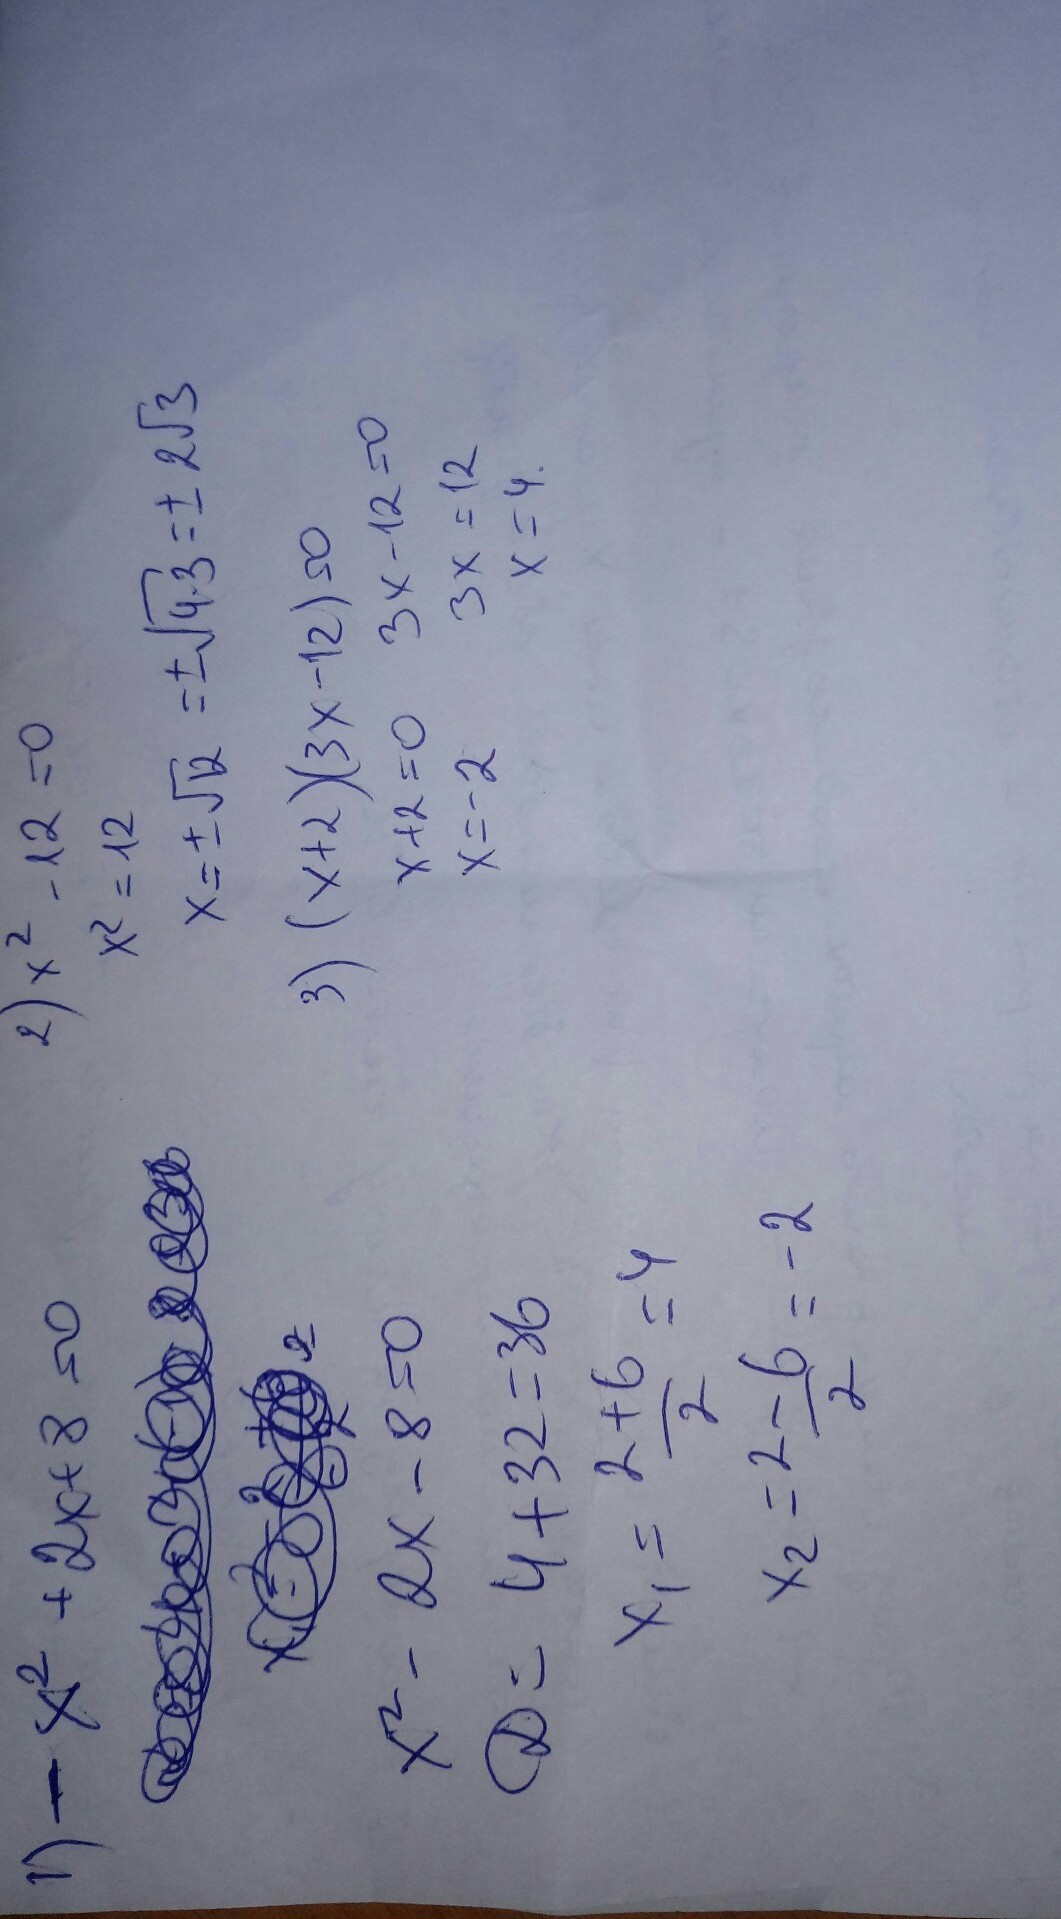 1) - x² + 2x + 8 = 0
x² - 2x - 8 = 0
D = 4 + 32 = 36
x₁ = (2+6)/2 = 4
x₂ = (2-6)/2 = -2
2) x² - 12 = 0
x² = 12
x = ±√12 = ±√4·3 = ±2√3
3) (x+2)(3x-12) = 0
x+2=0 3x-12=0
x=-2 3x=12
x=4.